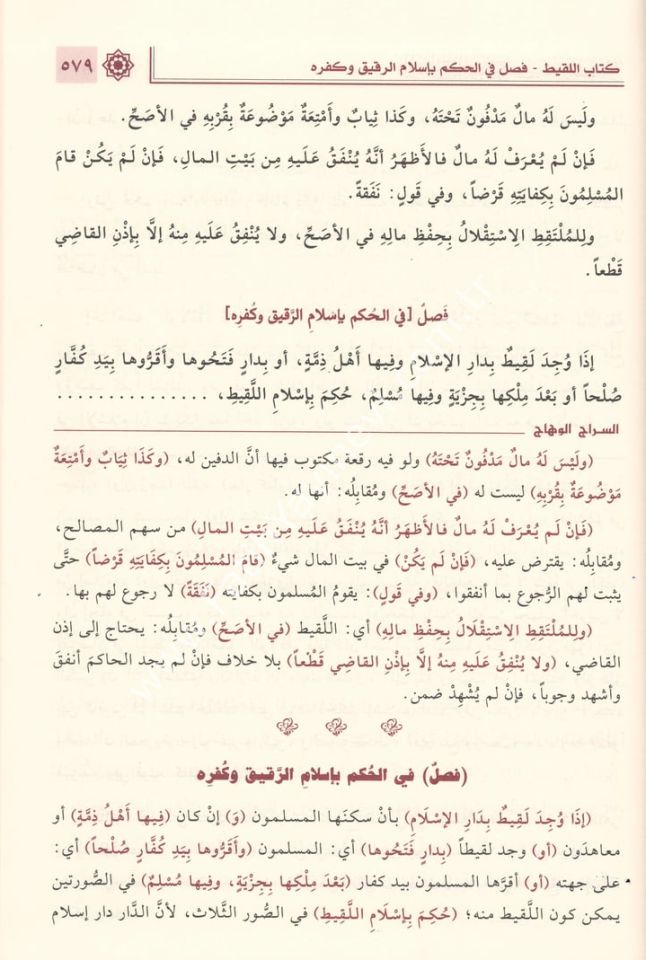 كتاب اللقيط - فصل في الحكم بإسلام الرقيق وكفره
٥٧٩
ولَيسَ لَهُ مالٌ مَدْفُونٌ تَحْتَهُ، وكَذا ثِيابٌ وأَمْتِعَةٌ مَوْضُوعَةٌ بِقُرْبِهِ في الأصَحِّ.
فَإنْ لَمْ يُعْرَفْ لَهُ مالٌ فالأَظْهَرُ أنَّهُ يُنْفَقُ عَلَيهِ مِن بَيْتِ المالِ، فَإنْ لَمْ يَكُنْ قامَ
المُسْلِمُونَ بِكِفايَتِهِ قَرْضاً، وفي قَولٍ: نَفَقَةً.
ولِلمُلْتَقِطِ الِاسْتِقْلالُ بِحِفْظِ مالِهِ في الأصَحِّ، ولا يُنْفِقُ عَلَيهِ مِنهُ إلَّا بِإذْنِ القاضِي
قَطْعاً.
فَصلٌ [في الحُكمِ بإسْلامِ الرَّقيقِ وكُفرِه]
إذَا وُجِدَ لَقِيطٌ بِدارِ الإسْلامِ وفِيها أَهْلُ ذِمَّةٍ، أو بِدارٍ فَتَحُوها وأقَرُّوها بِيَدِ كُفَّارٍ
صُلْحاً أو بَعْدَ مِلْكِها بِجِزْيَةٍ وفِيها مُسْلِمٌ، حُكِمَ بِإسْلامِ اللَّقِيطِ، ...............
السراج الوهاج
(ولَيْسَ لَهُ مالٌ مَدْفُونٌ تَحْتَهُ) ولو فيه رقعة مكتوب فيها أنَّ الدفين له، (وكَذَا ثِيَابٌ وأَمْتِعَةٌ
مَوْضُوعَةٌ بِقُرْبِهِ) ليست له (في الأصَحِّ) ومُقابِلُه: أنها له.
(فَإنْ لَم يُعْرَفْ لَهُ مالٌ فَالأَظْهَرُ أنَّهُ يُنْفَقُ عَلَيْهِ مِنْ بَيْتِ المالِ) من سهم المصالح،
ومُقابِلُه: يقترض عليه، (فَإنْ لَم يَكُنْ) في بيت المال شيءٌ (قامَ المُسْلِمُونَ بِكِفايَتِهِ قَرْضاً) حتَّى
يثبت لهم الرُّجوع بما أنفقوا، (وفي قَولٍ): يقومُ المُسلمون بكفايته (نَفَقَةً) لا رجوع لهم بها.
(ولِلمُلْتَقِطِ الِاسْتِقْلَالُ بِحِفْظِ مالِهِ) أي: اللَّقيط (في الأصَحِّ) ومُقابِلُه: يحتاج إلى إذن
القاضي، (ولا يُنْفِقُ عَلَيهِ مِنهُ إلَّا بِإذْنِ القاضِي قَطْعاً) بلا خلاف فإنْ لم يجد الحاكمَ أنفقَ
وأشهد وجوباً، فإنْ لم يُشْهِدْ ضمن.
(فصلٌ) في الحُكمِ بإسلامِ الرَّقيقِ وكُفرِه
(إذَا وُجِدَ لَقِيطٌ بِدَارِ الإسْلَامِ) بأنْ سكنَها المسلمون (وَ) إنْ كان (فِيها أَهْلُ ذِمَّةٍ) أو
معاهدون (أو) وجد لقيطاً (بِدارٍ فَتَحُوها) أي: المسلمون (وأقَرُّوها بِيَدِ كُفَّارٍ صُلْحاً) أي:
على جهته (أو) أقرَّها المسلمون بيد كفار (بَعْدَ مِلْكِها بِجِزْيَةٍ، وفِيها مُسْلِمٌ) في الصُّورتين
يمكن كون اللَّقيط منه؛ (حُكِمَ بِإسْلَامِ اللَّقِيطِ) في الصُّور الثَّلاث، لأنَّ الدَّار دار إسلام